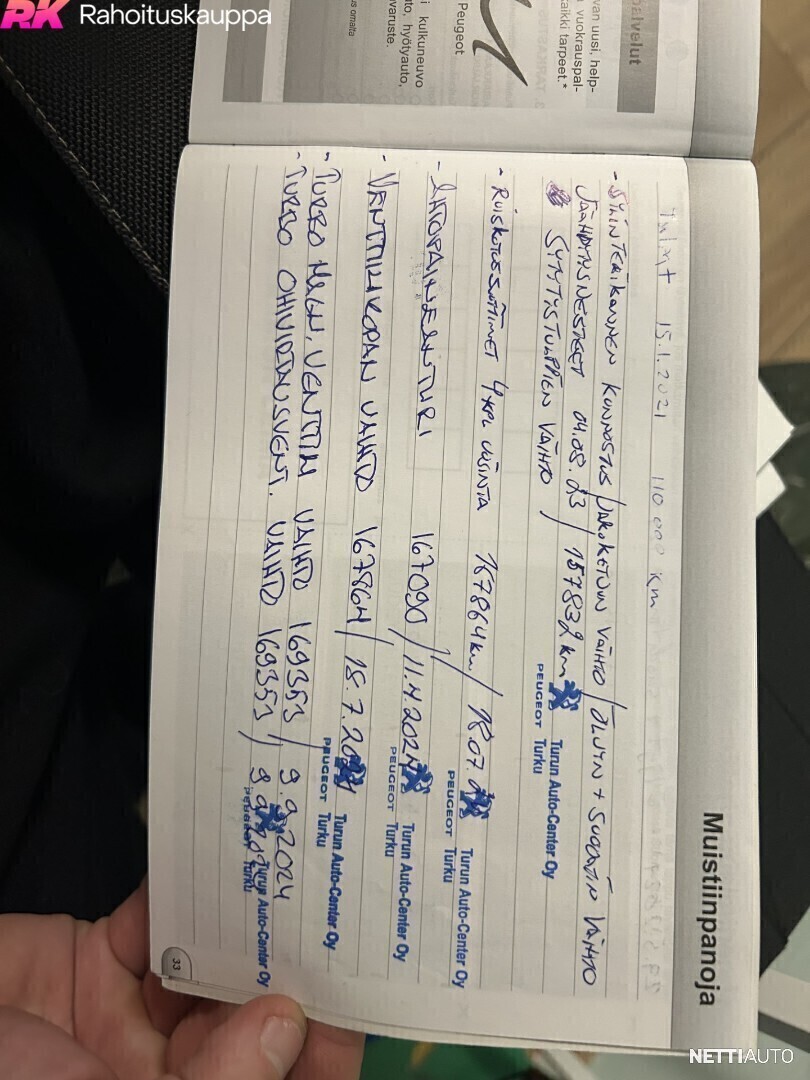 RK Rahoituskauppa
palvelut
van uusi, help-
vuokrauspal-
kaikki tarpeet.*
Peugeot
i kulkuneuvo
ato, hyötyauto,
varuste.
us omalta
Muistiinpanoja
15.1.2021 110 000 km
- SYLINTERIKANNEN KUNNOSTUS / JAKOKETJUN VAIHTO / ÖLJYN + SUODATIN VAIHTO
JÄÄHDYTYSNESTEET 04.08.23 / 157832 km
SYTYTYSTULPPIEN VAIHTO
PEUGEOT Turun Auto-Center Oy
Turku
- RUISKUTUSSUUTTIMET 4 KPL UUSINTA 167864 km / 15.07.
PEUGEOT Turun Auto-Center Oy
Turku
- AHTOPAINEANTURI 167090 / 11.4.2024
PEUGEOT Turun Auto-Center Oy
Turku
- VENTTIILIKOPAN VAIHTO 167864 / 15.7.2024
PEUGEOT Turun Auto-Center Oy
Turku
- TURBO MAGN. VENTTIILIN VAIHTO 169353 / 9.9.2024
- TURBO OHIVIRTAUSVENT. VAIHTO 169353 /
PEUGEOT Turun Auto-Center Oy
Turku
33
NETTIAUTO